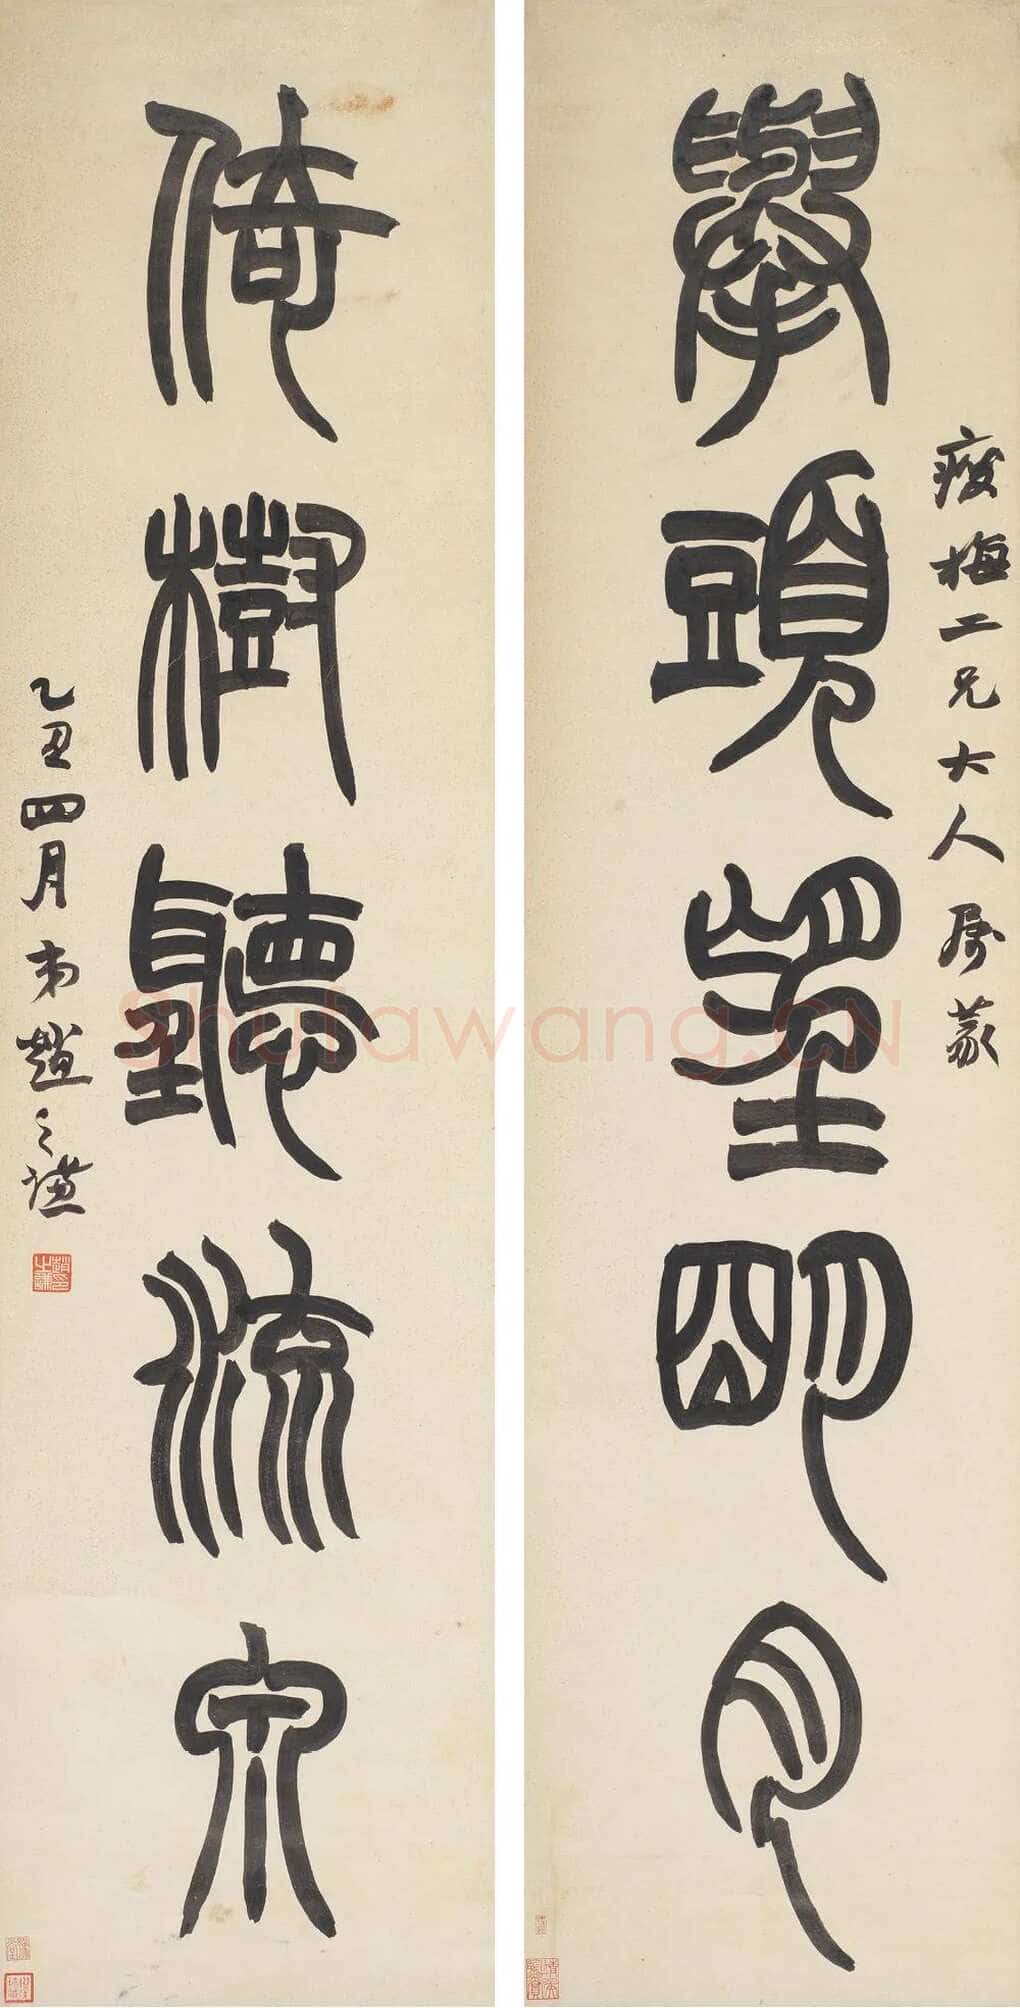 舉頭望明月
瘦梅二兄大人屬篆
倚樹聽流泉
乙丑四月弟趙之謙
趙之謙印
Shufawang.CN